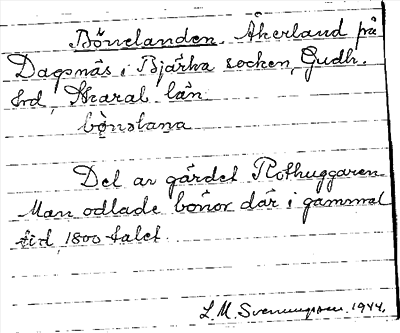 Bönelanden. Åkerland på
Dagsnäs i Bjärka socken, Gudh.
hrd, Skarab. län.
bø̀nəlana
Del av gärdet Rothuggaren
Man odlade bönor där i gammal
tid, 1800 talet.
L. M. Svenungsson. 1944.